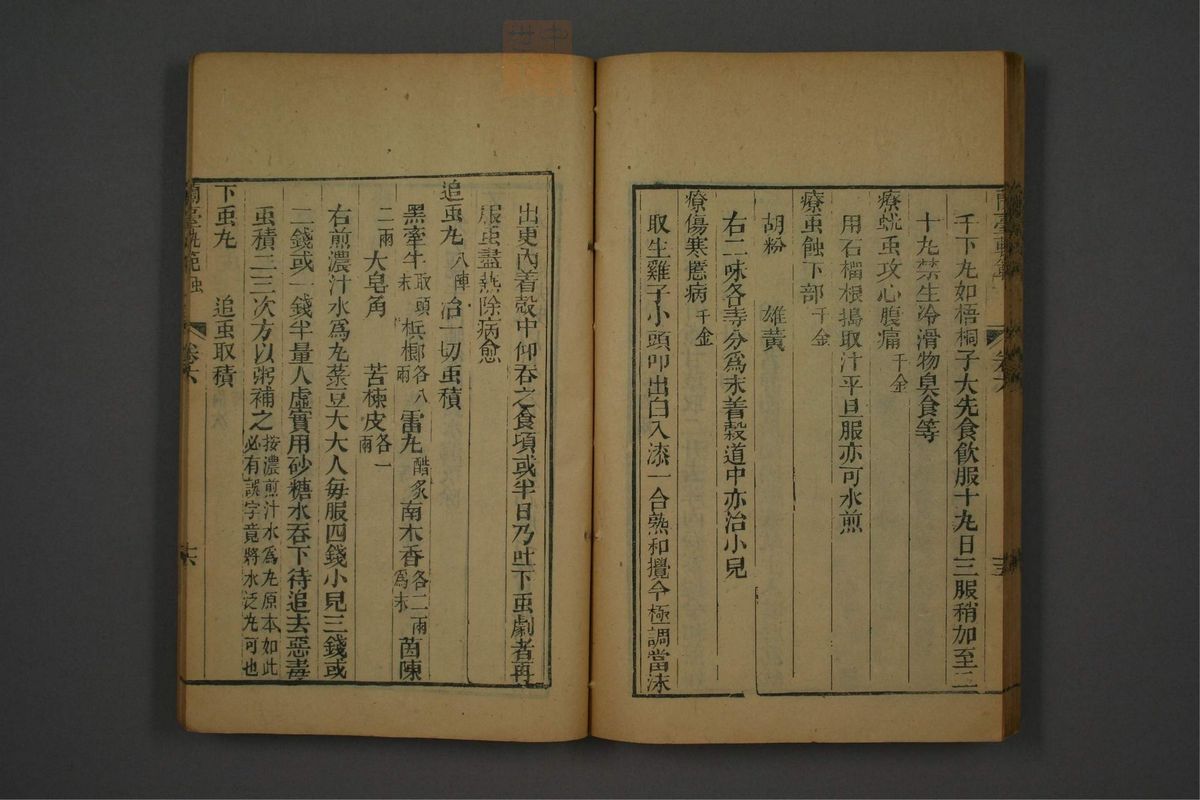 千下丸如梧桐子大先食飲服十丸日三服稍加至二
十丸禁生冷滑物臭食等
療蚘虫攻心腹痛千金
用石榴根搗取汁平旦服亦可水煎
療虫蝕下部千金
胡粉 雄黃
右二味各等分爲末着穀道中亦治小兒
療傷寒䘌病千金
取生雞子小頭叩出白入漆一合熟和攪令極調當沫
出更內着殼中仰吞之食頃或半日乃吐下虫劇者再
服虫盡熱除病愈
追虫丸八陣治一切虫積
黑牽牛取頭末檳榔各八兩雷丸醋炙南木香各二兩爲末茵陳
二兩大皂角 苦楝皮各一兩
右煎濃汁水爲丸菉豆大大人每服四錢小兒三錢或
二錢或一錢半量人虛實用砂糖水吞下待追去惡毒
虫積二三次方以粥補之按濃煎汁水爲丸原本如此必有誤字竟將水泛丸可也
下虫丸 追虫取積
蘭臺軌範 虫 卷六 十六